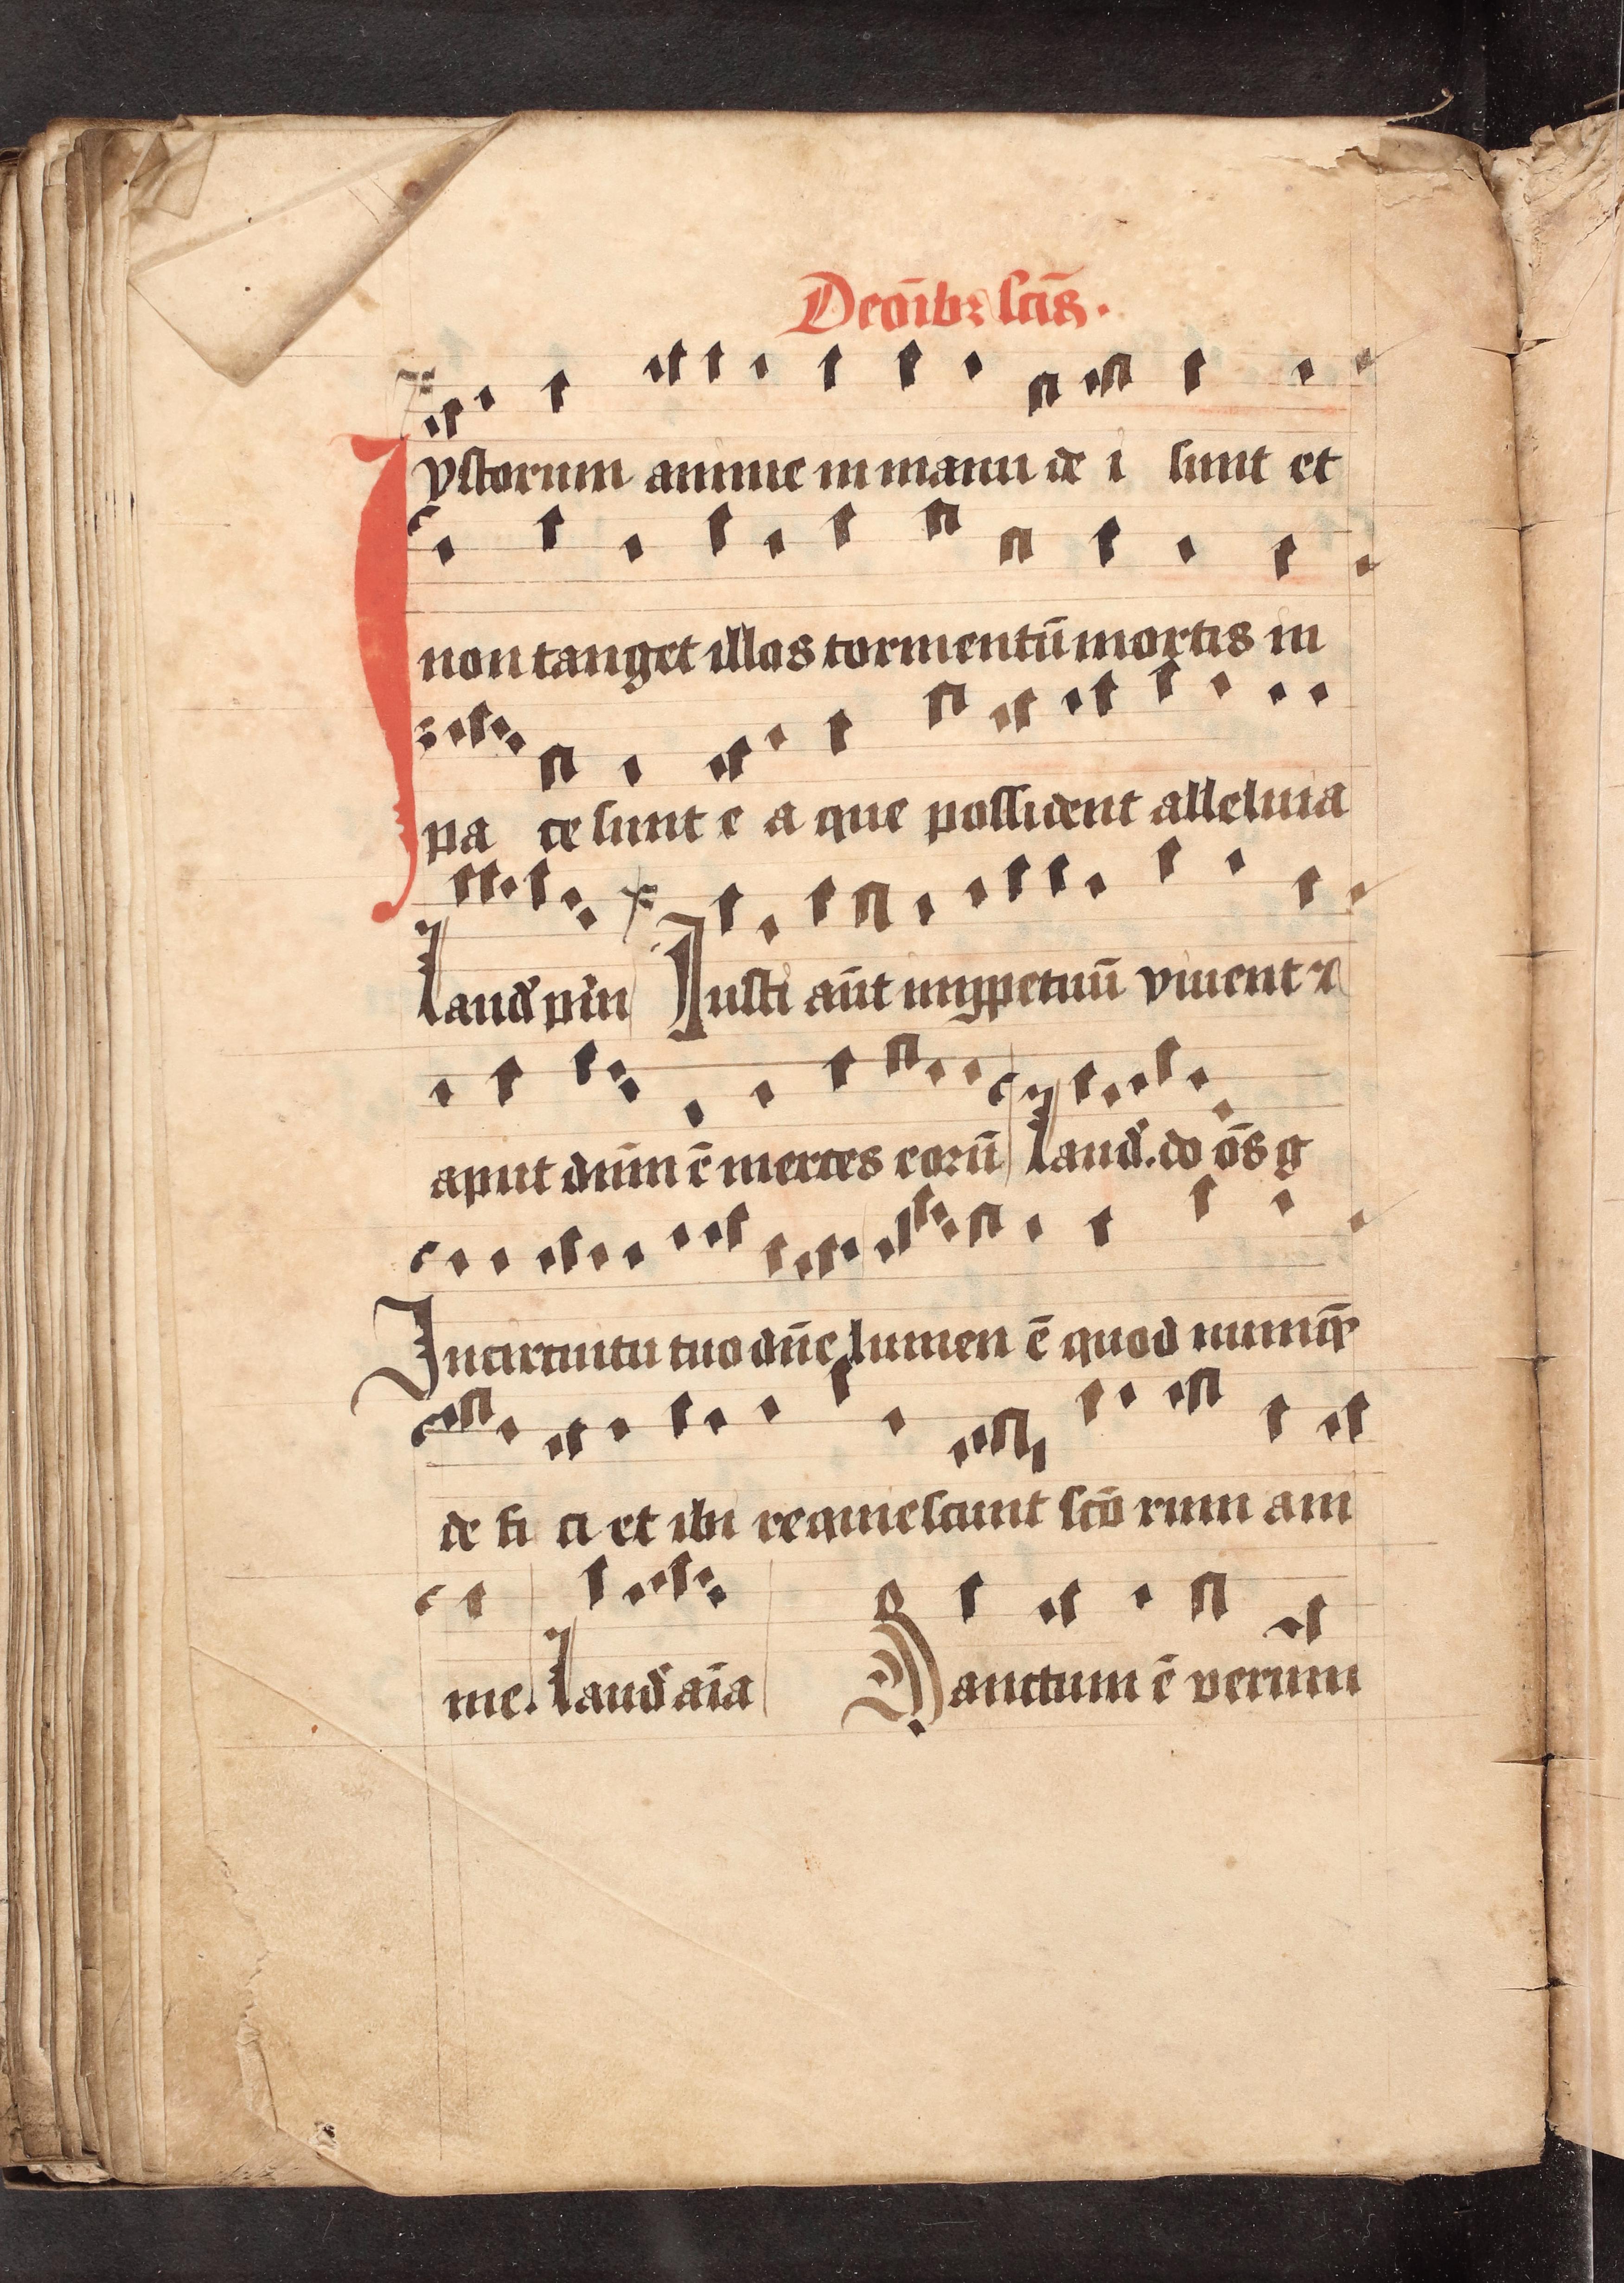 De oı̄bꝫ sc̄is.
Ivstorum anime in manu de i sunt et
non tanget illos tormentū mortis in
pa ce sunt e a que possident alleluia
laud̾ pm̄ Iusti aūt inꝑpetuū viuent ⁊
aput dn̄m ē merces eorū laud̾. do om̄s g
In circuitu tuo dn̄e lumen ē quod nunq̄
de fi ci et ibi requiescunt sc̄o rum ani
me. laud̾ aīa Sanctum ē verum